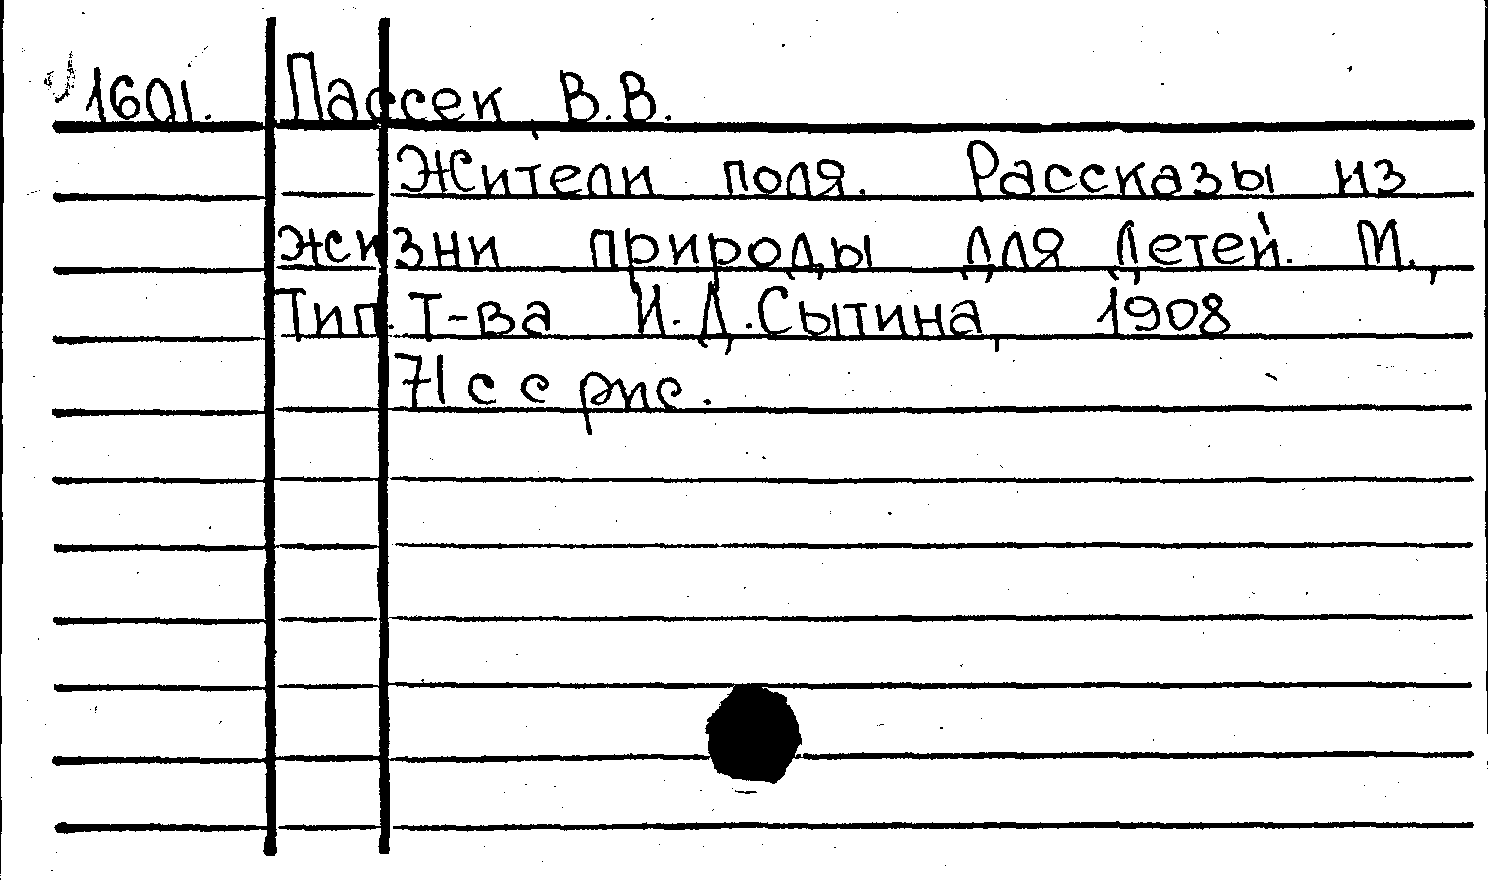 1601. Пассек, В.В.
Жители поля. Рассказы из
жизни природы для детей. М.,
Тип. Т-ва И.Д.Сытина, 1908
71 с с рис.